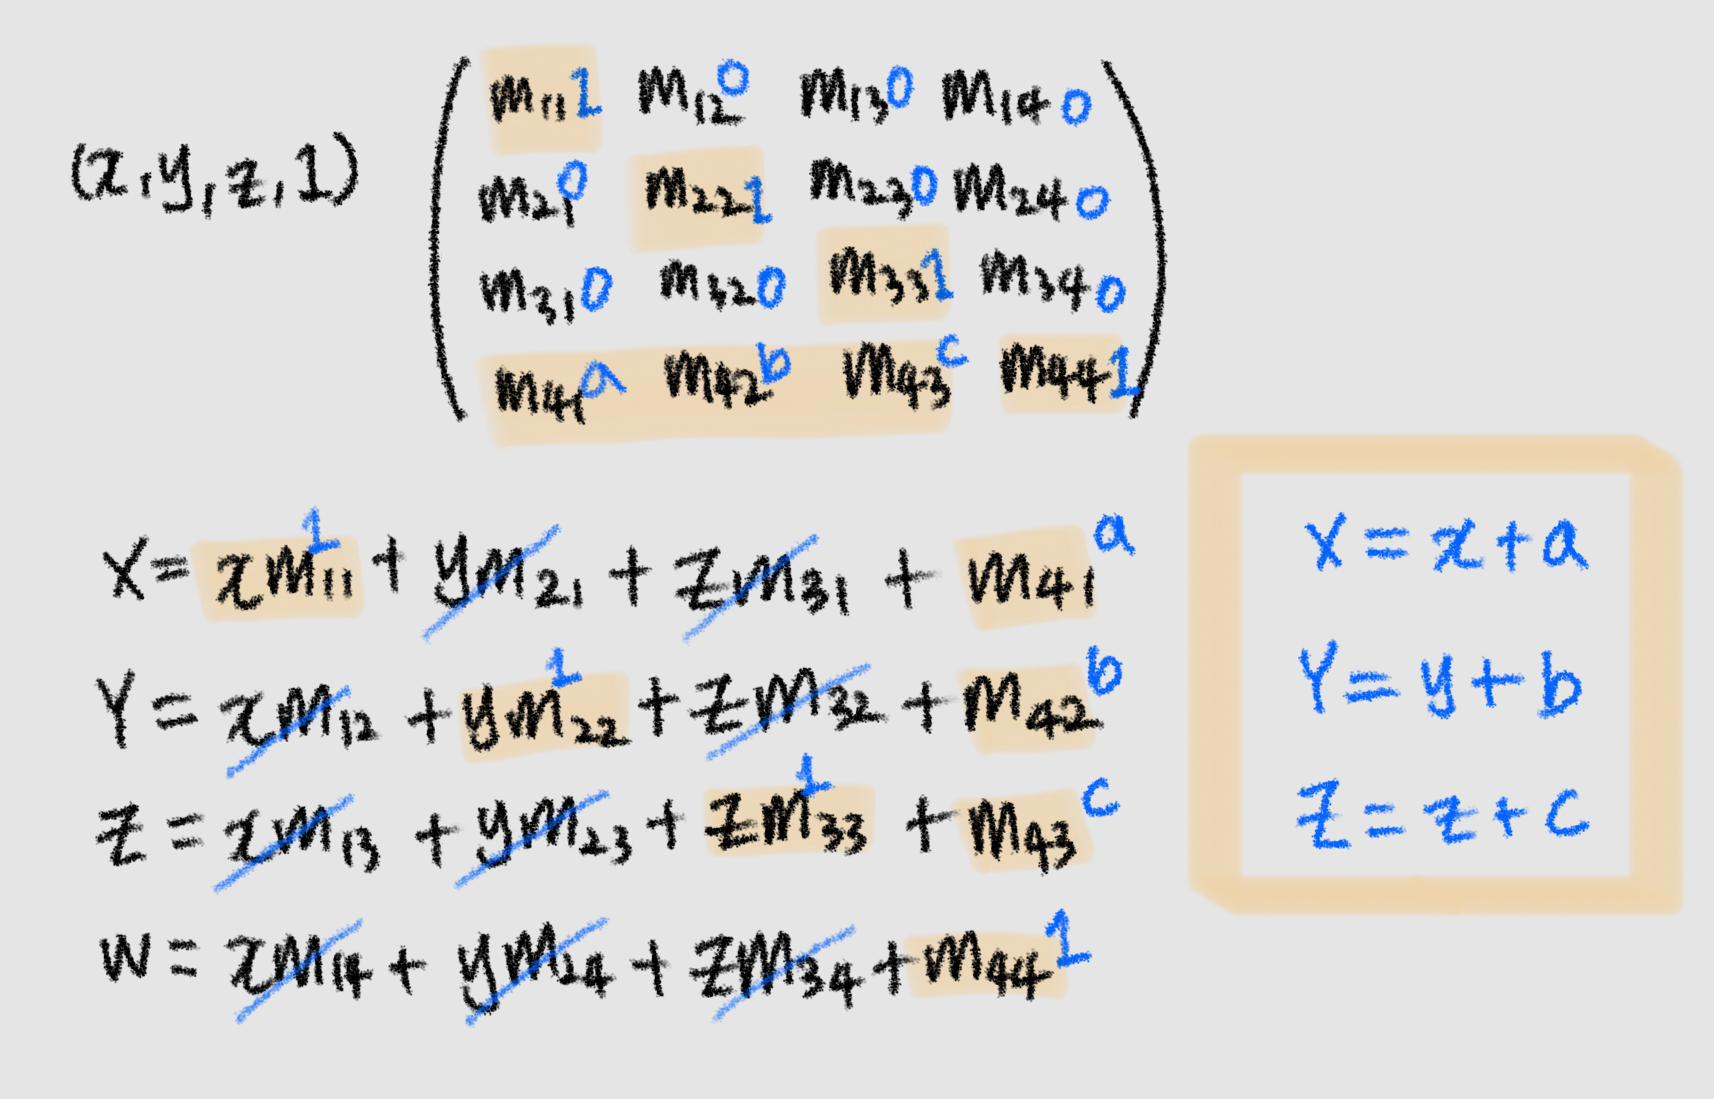 (x, y, z, 1)
m₁₁1 m₁₂0 m₁₃0 m₁₄0
m₂₁0 m₂₂1 m₂₃0 m₂₄0
m₃₁0 m₃₂0 m₃₃1 m₃₄0
m₄₁a m₄₂b m₄₃c m₄₄1
X = xm₁₁ 1 + ym₂₁ + zm₃₁ + m₄₁ a
Y = xm₁₂ + ym₂₂ 1 + zm₃₂ + m₄₂ b
Z = xm₁₃ + ym₂₃ + zm₃₃ 1 + m₄₃ c
W = xm₁₄ + ym₂₄ + zm₃₄ + m₄₄ 1
X = x + a
Y = y + b
Z = z + c